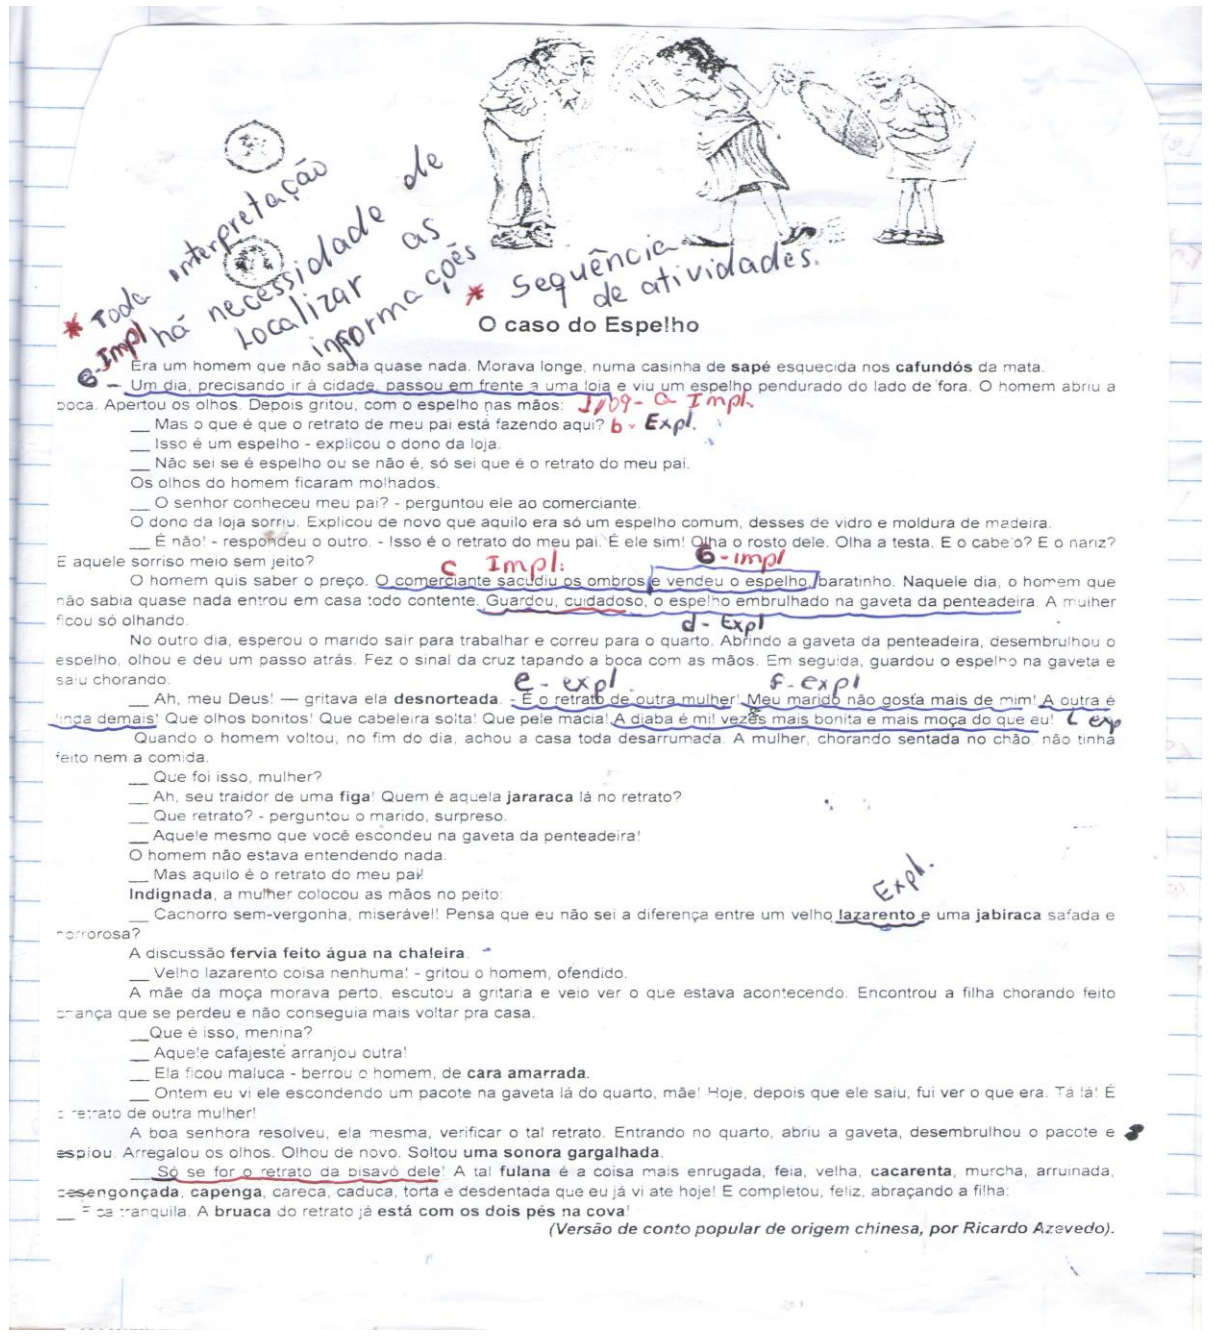 * Toda interpretação
há necessidade de
Localizar as
informações
* Sequência
de atividades.
O caso do Espelho
6-Impl
Era um homem que não sabia quase nada. Morava longe, numa casinha de sapé esquecida nos cafundós da mata.
– Um dia, precisando ir à cidade, passou em frente a uma loja e viu um espelho pendurado do lado de fora. O homem abriu a
boca. Apertou os olhos. Depois gritou, com o espelho nas mãos: 1/09- a Impl
__ Mas o que é que o retrato de meu pai está fazendo aqui? b - Expl.
__ Isso é um espelho - explicou o dono da loja.
__ Não sei se é espelho ou se não é, só sei que é o retrato do meu pai.
Os olhos do homem ficaram molhados.
__ O senhor conheceu meu pai? - perguntou ele ao comerciante.
O dono da loja sorriu. Explicou de novo que aquilo era só um espelho comum, desses de vidro e moldura de madeira.
__ É não! - respondeu o outro. - Isso é o retrato do meu pai. É ele sim! Olha o rosto dele. Olha a testa. E o cabelo? E o nariz?
E aquele sorriso meio sem jeito?
c Impl. 6-impl
O homem quis saber o preço. O comerciante sacudiu os ombros e vendeu o espelho, baratinho. Naquele dia, o homem que
não sabia quase nada entrou em casa todo contente. Guardou, cuidadoso, o espelho embrulhado na gaveta da penteadeira. A mulher
ficou só olhando.
d - Expl
No outro dia, esperou o marido sair para trabalhar e correu para o quarto. Abrindo a gaveta da penteadeira, desembrulhou o
espelho, olhou e deu um passo atrás. Fez o sinal da cruz tapando a boca com as mãos. Em seguida, guardou o espelho na gaveta e
saiu chorando.
e - expl. f - expl
__ Ah, meu Deus! — gritava ela desnorteada. - É o retrato de outra mulher! Meu marido não gosta mais de mim! A outra é
linda demais! Que olhos bonitos! Que cabeleira solta! Que pele macia! A diaba é mil vezes mais bonita e mais moça do que eu! exp
Quando o homem voltou, no fim do dia, achou a casa toda desarrumada. A mulher, chorando sentada no chão, não tinha
feito nem a comida.
__ Que foi isso, mulher?
__ Ah, seu traidor de uma figa! Quem é aquela jararaca lá no retrato?
__ Que retrato? - perguntou o marido, surpreso.
__ Aquele mesmo que você escondeu na gaveta da penteadeira!
O homem não estava entendendo nada.
__ Mas aquilo é o retrato do meu pai!
Indignada, a mulher colocou as mãos no peito:
Expl.
__ Cachorro sem-vergonha, miserável! Pensa que eu não sei a diferença entre um velho lazarento e uma jabiraca safada e
horrorosa?
A discussão fervia feito água na chaleira.
__ Velho lazarento coisa nenhuma! - gritou o homem, ofendido.
A mãe da moça morava perto, escutou a gritaria e veio ver o que estava acontecendo. Encontrou a filha chorando feito
criança que se perdeu e não conseguia mais voltar pra casa.
__Que é isso, menina?
__ Aquele cafajeste arranjou outra!
__ Ela ficou maluca - berrou o homem, de cara amarrada.
__ Ontem eu vi ele escondendo um pacote na gaveta lá do quarto, mãe! Hoje, depois que ele saiu, fui ver o que era. Tá lá! É
o retrato de outra mulher!
A boa senhora resolveu, ela mesma, verificar o tal retrato. Entrando no quarto, abriu a gaveta, desembrulhou o pacote e
espiou. Arregalou os olhos. Olhou de novo. Soltou uma sonora gargalhada.
__ Só se for o retrato da bisavó dele! A tal fulana é a coisa mais enrugada, feia, velha, cacarenta, murcha, arruinada,
desengonçada, capenga, careca, caduca, torta e desdentada que eu já vi ate hoje! E completou, feliz, abraçando a filha:
__ Fica tranquila. A bruaca do retrato já está com os dois pés na cova!
(Versão de conto popular de origem chinesa, por Ricardo Azevedo).